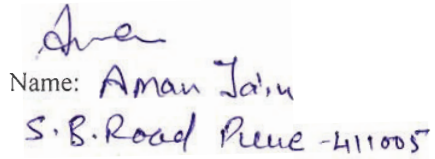 Name: Aman Jain
S.B.Road Pune -411005